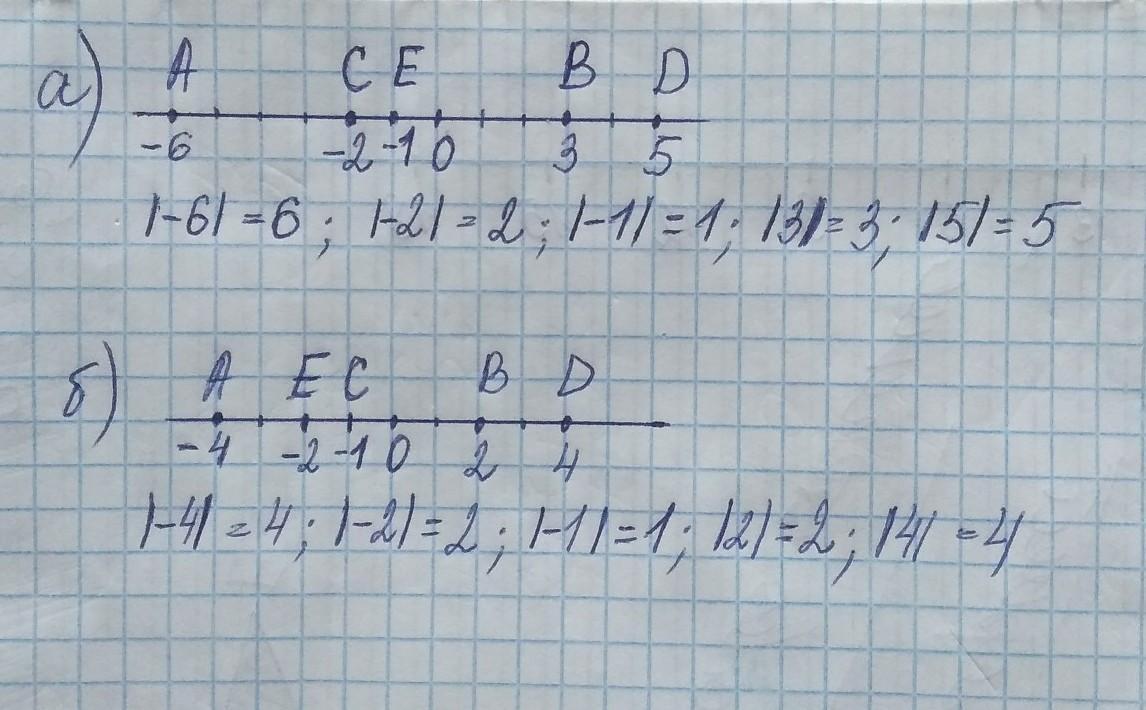 а) A C E B D
-6 -2 -1 0 3 5
|-6| = 6 ; |-2| = 2 ; |-1| = 1 ; |3| = 3 ; |5| = 5
б) A E C B D
-4 -2 -1 0 2 4
|-4| = 4 ; |-2| = 2 ; |-1| = 1 ; |2| = 2 ; |4| = 4